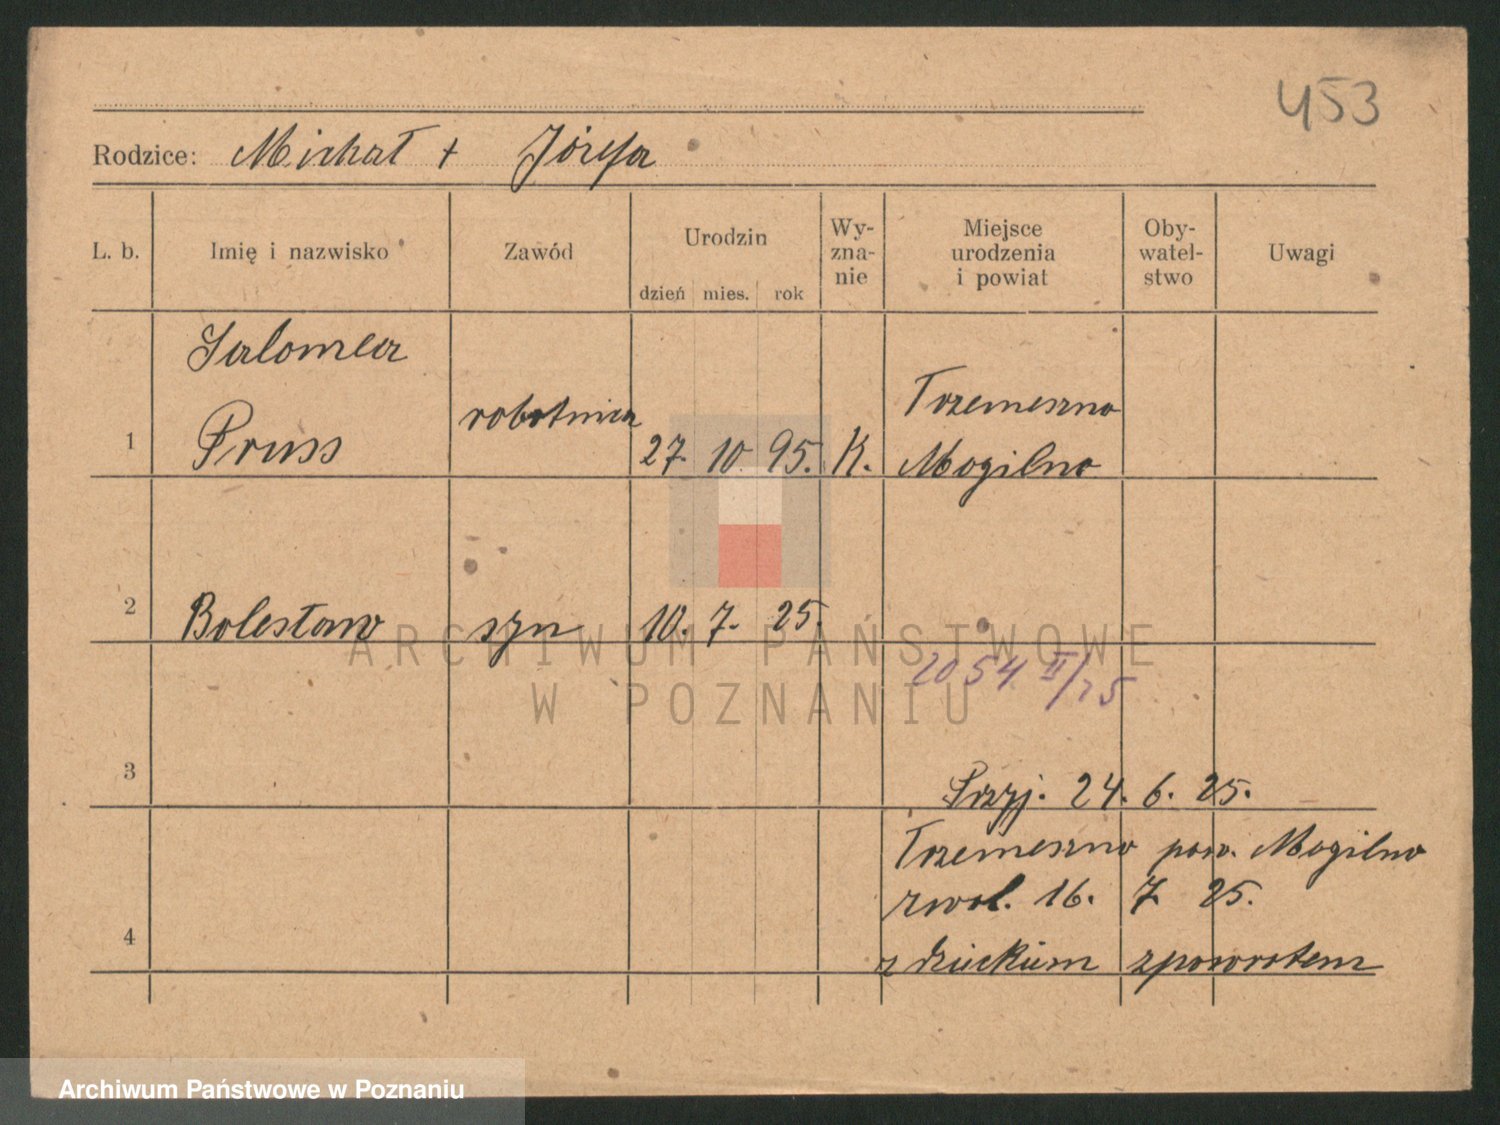 453
Rodzice: Michał + Józefa
L. b. Imię i nazwisko Zawód Urodzin dzień mies. rok Wy-zna-nie Miejsce urodzenia i powiat Oby-watel-stwo Uwagi
Salomea
1 Pruss robotnica 27. 10 95. K. Trzemeszno
Mogilno
2 Bolesław syn 10. 7. 25.
2054 II/25
3 Przyj. 24. 6. 25.
Trzemeszno pow. Mogilno
zwol. 16. 7. 25.
4 z dzieckiem zpowrotem
ARCHIWUM PAŃSTWOWE
W POZNANIU
Archiwum Państwowe w Poznaniu